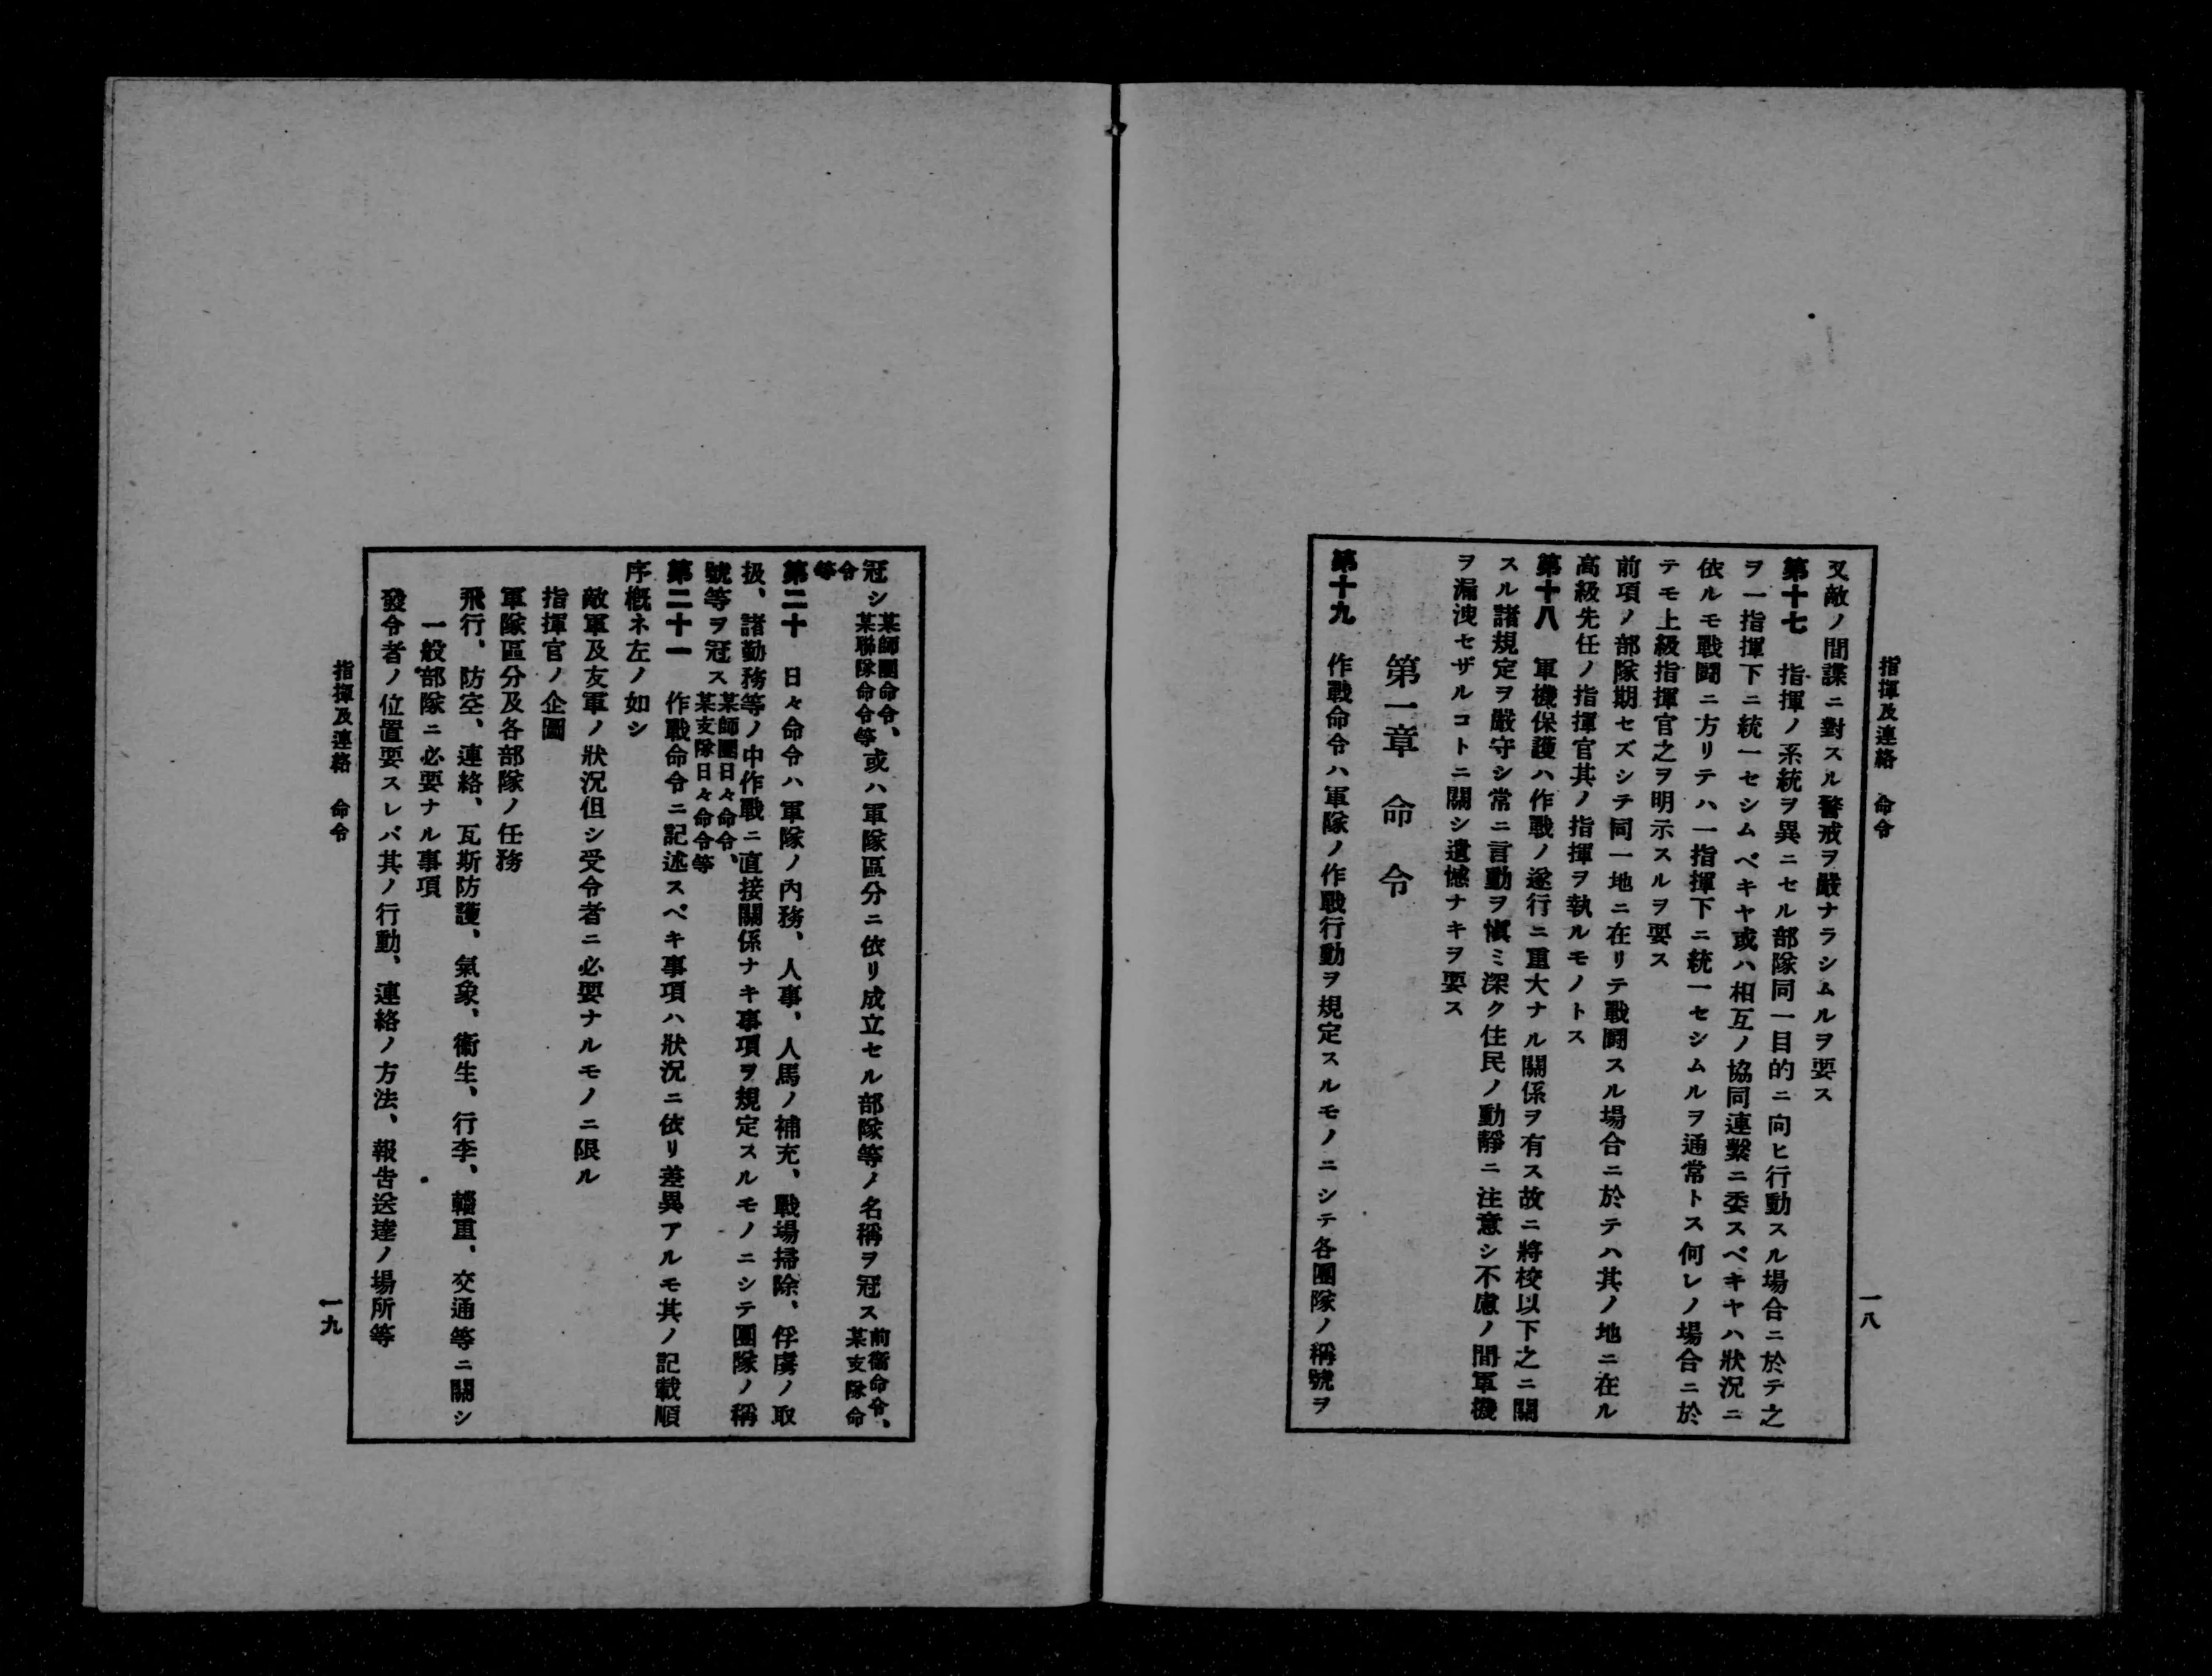 指揮及連絡　命令
一八
又敵ノ間諜ニ對スル警戒ヲ嚴ナラシムルヲ要ス
第十七　指揮ノ系統ヲ異ニセル部隊同一目的ニ向ヒ行動スル場合ニ於テ之
ヲ一指揮下ニ統一セシムベキヤ或ハ相互ノ協同連繫ニ委スベキヤハ狀況ニ
依ルモ戰鬪ニ方リテハ一指揮下ニ統一セシムルヲ通常トス何レノ場合ニ於
テモ上級指揮官之ヲ明示スルヲ要ス
前項ノ部隊期セズシテ同一地ニ在リテ戰鬪スル場合ニ於テハ其ノ地ニ在ル
高級先任ノ指揮官其ノ指揮ヲ執ルモノトス
第十八　軍機保護ハ作戰ノ遂行ニ重大ナル關係ヲ有ス故ニ將校以下之ニ關
スル諸規定ヲ嚴守シ常ニ言動ヲ愼ミ深ク住民ノ動靜ニ注意シ不慮ノ間軍機
ヲ漏洩セザルコトニ關シ遺憾ナキヲ要ス
第一章　命　令
第十九　作戰命令ハ軍隊ノ作戰行動ヲ規定スルモノニシテ各團隊ノ稱號ヲ
冠シ某師團命令、某聯隊命令等或ハ軍隊區分ニ依リ成立セル部隊等ノ名稱ヲ冠ス前衞命令、某支隊命
令等
第二十　日々命令ハ軍隊ノ內務、人事、人馬ノ補充、戰場掃除、俘虜ノ取
扱、諸勤務等ノ中作戰ニ直接關係ナキ事項ヲ規定スルモノニシテ團隊ノ稱
號等ヲ冠ス某師團日々命令、某支隊日々命令等
第二十一　作戰命令ニ記述スベキ事項ハ狀況ニ依リ差異アルモ其ノ記載順
序槪ネ左ノ如シ
敵軍及友軍ノ狀況但シ受令者ニ必要ナルモノニ限ル
指揮官ノ企圖
軍隊區分及各部隊ノ任務
飛行、防空、連絡、瓦斯防護、氣象、衞生、行李、輜重、交通等ニ關シ
一般部隊ニ必要ナル事項
發令者ノ位置要スレバ其ノ行動、連絡ノ方法、報告送達ノ場所等
指揮及連絡　命令
一九